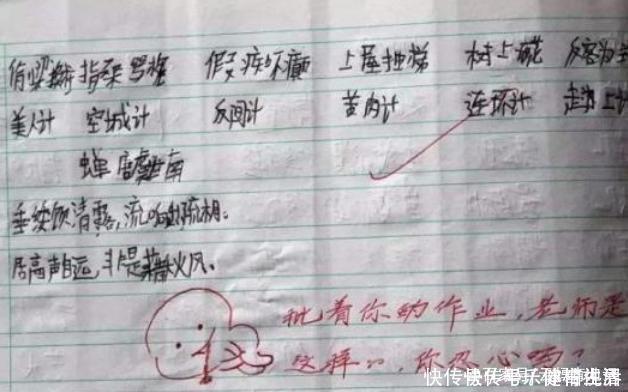 偷梁换柱 指桑骂槐 假痴不癫 上屋抽梯 树上开花 反客为主
美人计 空城计 反间计 苦肉计 连环计 走为上计
蝉 虞世南
垂緌饮清露,流响出疏桐。
居高声自远,非是藉秋风。
批着你的作业,老师是
这样的,你忍心吗?
快传